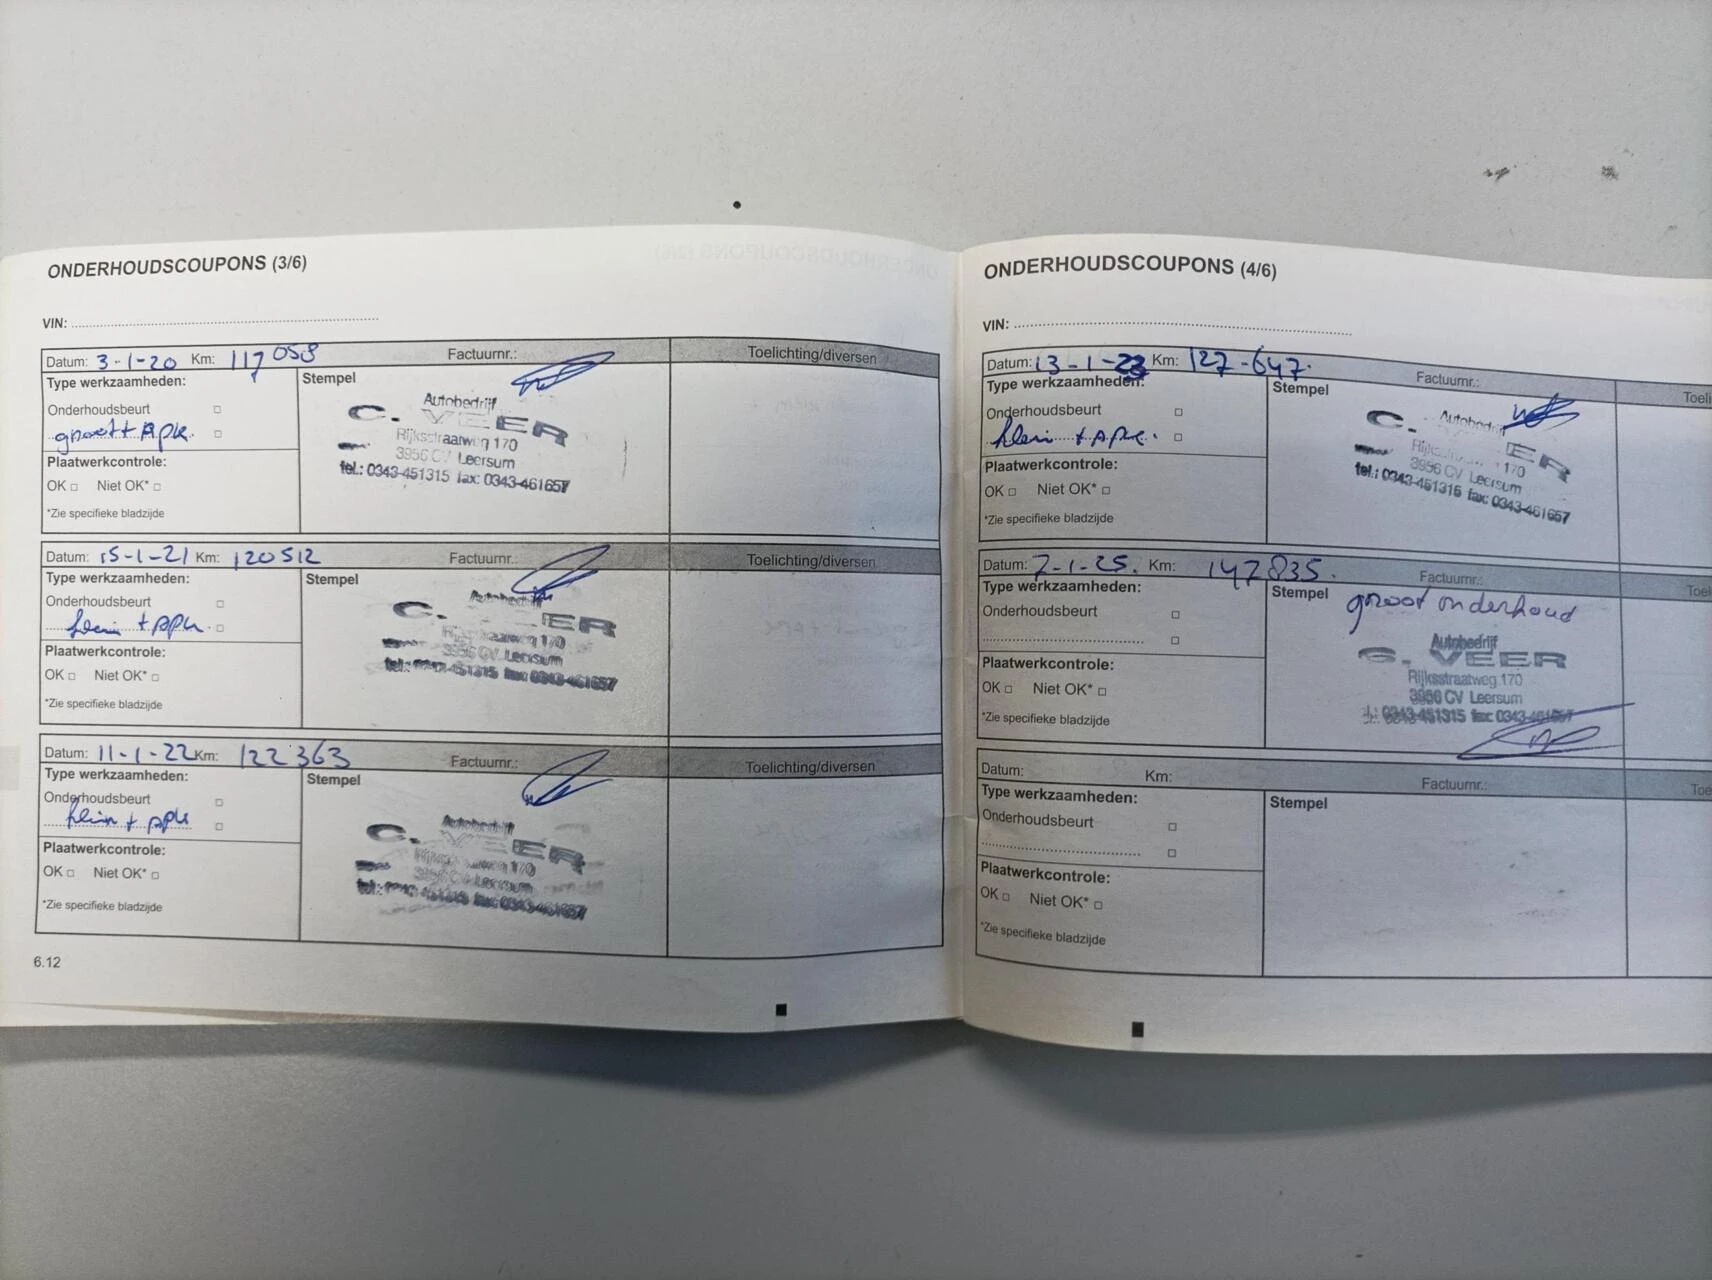 ONDERHOUDSCOUPONS (3/6)
VIN:
Datum: 3-1-20 Km: 117 058 Factuurnr.: Toelichting/diversen
Type werkzaamheden:
Stempel
Onderhoudsbeurt
groot + APK.
Plaatwerkcontrole:
OK Niet OK*
*Zie specifieke bladzijde
Autobedrijf
C. VEER
Rijksstraatweg 170
3956 CV Leersum
tel.: 0343-451315 fax: 0343-461657
Datum: 15-1-21 Km: 120512 Factuurnr.: Toelichting/diversen
Type werkzaamheden:
Stempel
Onderhoudsbeurt
klein + APK.
Plaatwerkcontrole:
OK Niet OK*
*Zie specifieke bladzijde
Autobedrijf
C. VEER
Rijksstraatweg 170
3956 CV Leersum
tel.: 0343-451315 fax: 0343-461657
Datum: 11-1-22 Km: 122363 Factuurnr.: Toelichting/diversen
Type werkzaamheden:
Stempel
Onderhoudsbeurt
klein + APK
Plaatwerkcontrole:
OK Niet OK*
*Zie specifieke bladzijde
Autobedrijf
C. VEER
Rijksstraatweg 170
3956 CV Leersum
tel.: 0343-451315 fax: 0343-461657
6.12
ONDERHOUDSCOUPONS (4/6)
VIN:
Datum: 13-1-23 Km: 127-647. Factuurnr.: Toeli
Type werkzaamheden:
Stempel
Onderhoudsbeurt
klein + APK.
Plaatwerkcontrole:
OK Niet OK*
*Zie specifieke bladzijde
Autobedrijf
C. VEER
Rijksstraatweg 170
3956 CV Leersum
tel.: 0343-451315 fax: 0343-461657
Datum: 7-1-25. Km: 147835. Factuurnr.: Toel
Type werkzaamheden:
Stempel
groot onderhoud
Onderhoudsbeurt
Plaatwerkcontrole:
OK Niet OK*
*Zie specifieke bladzijde
Autobedrijf
C. VEER
Rijksstraatweg 170
3956 CV Leersum
tel.: 0343-451315 fax: 0343-461657
Datum: Km: Factuurnr.: Toe
Type werkzaamheden:
Stempel
Onderhoudsbeurt
Plaatwerkcontrole:
OK Niet OK*
*Zie specifieke bladzijde